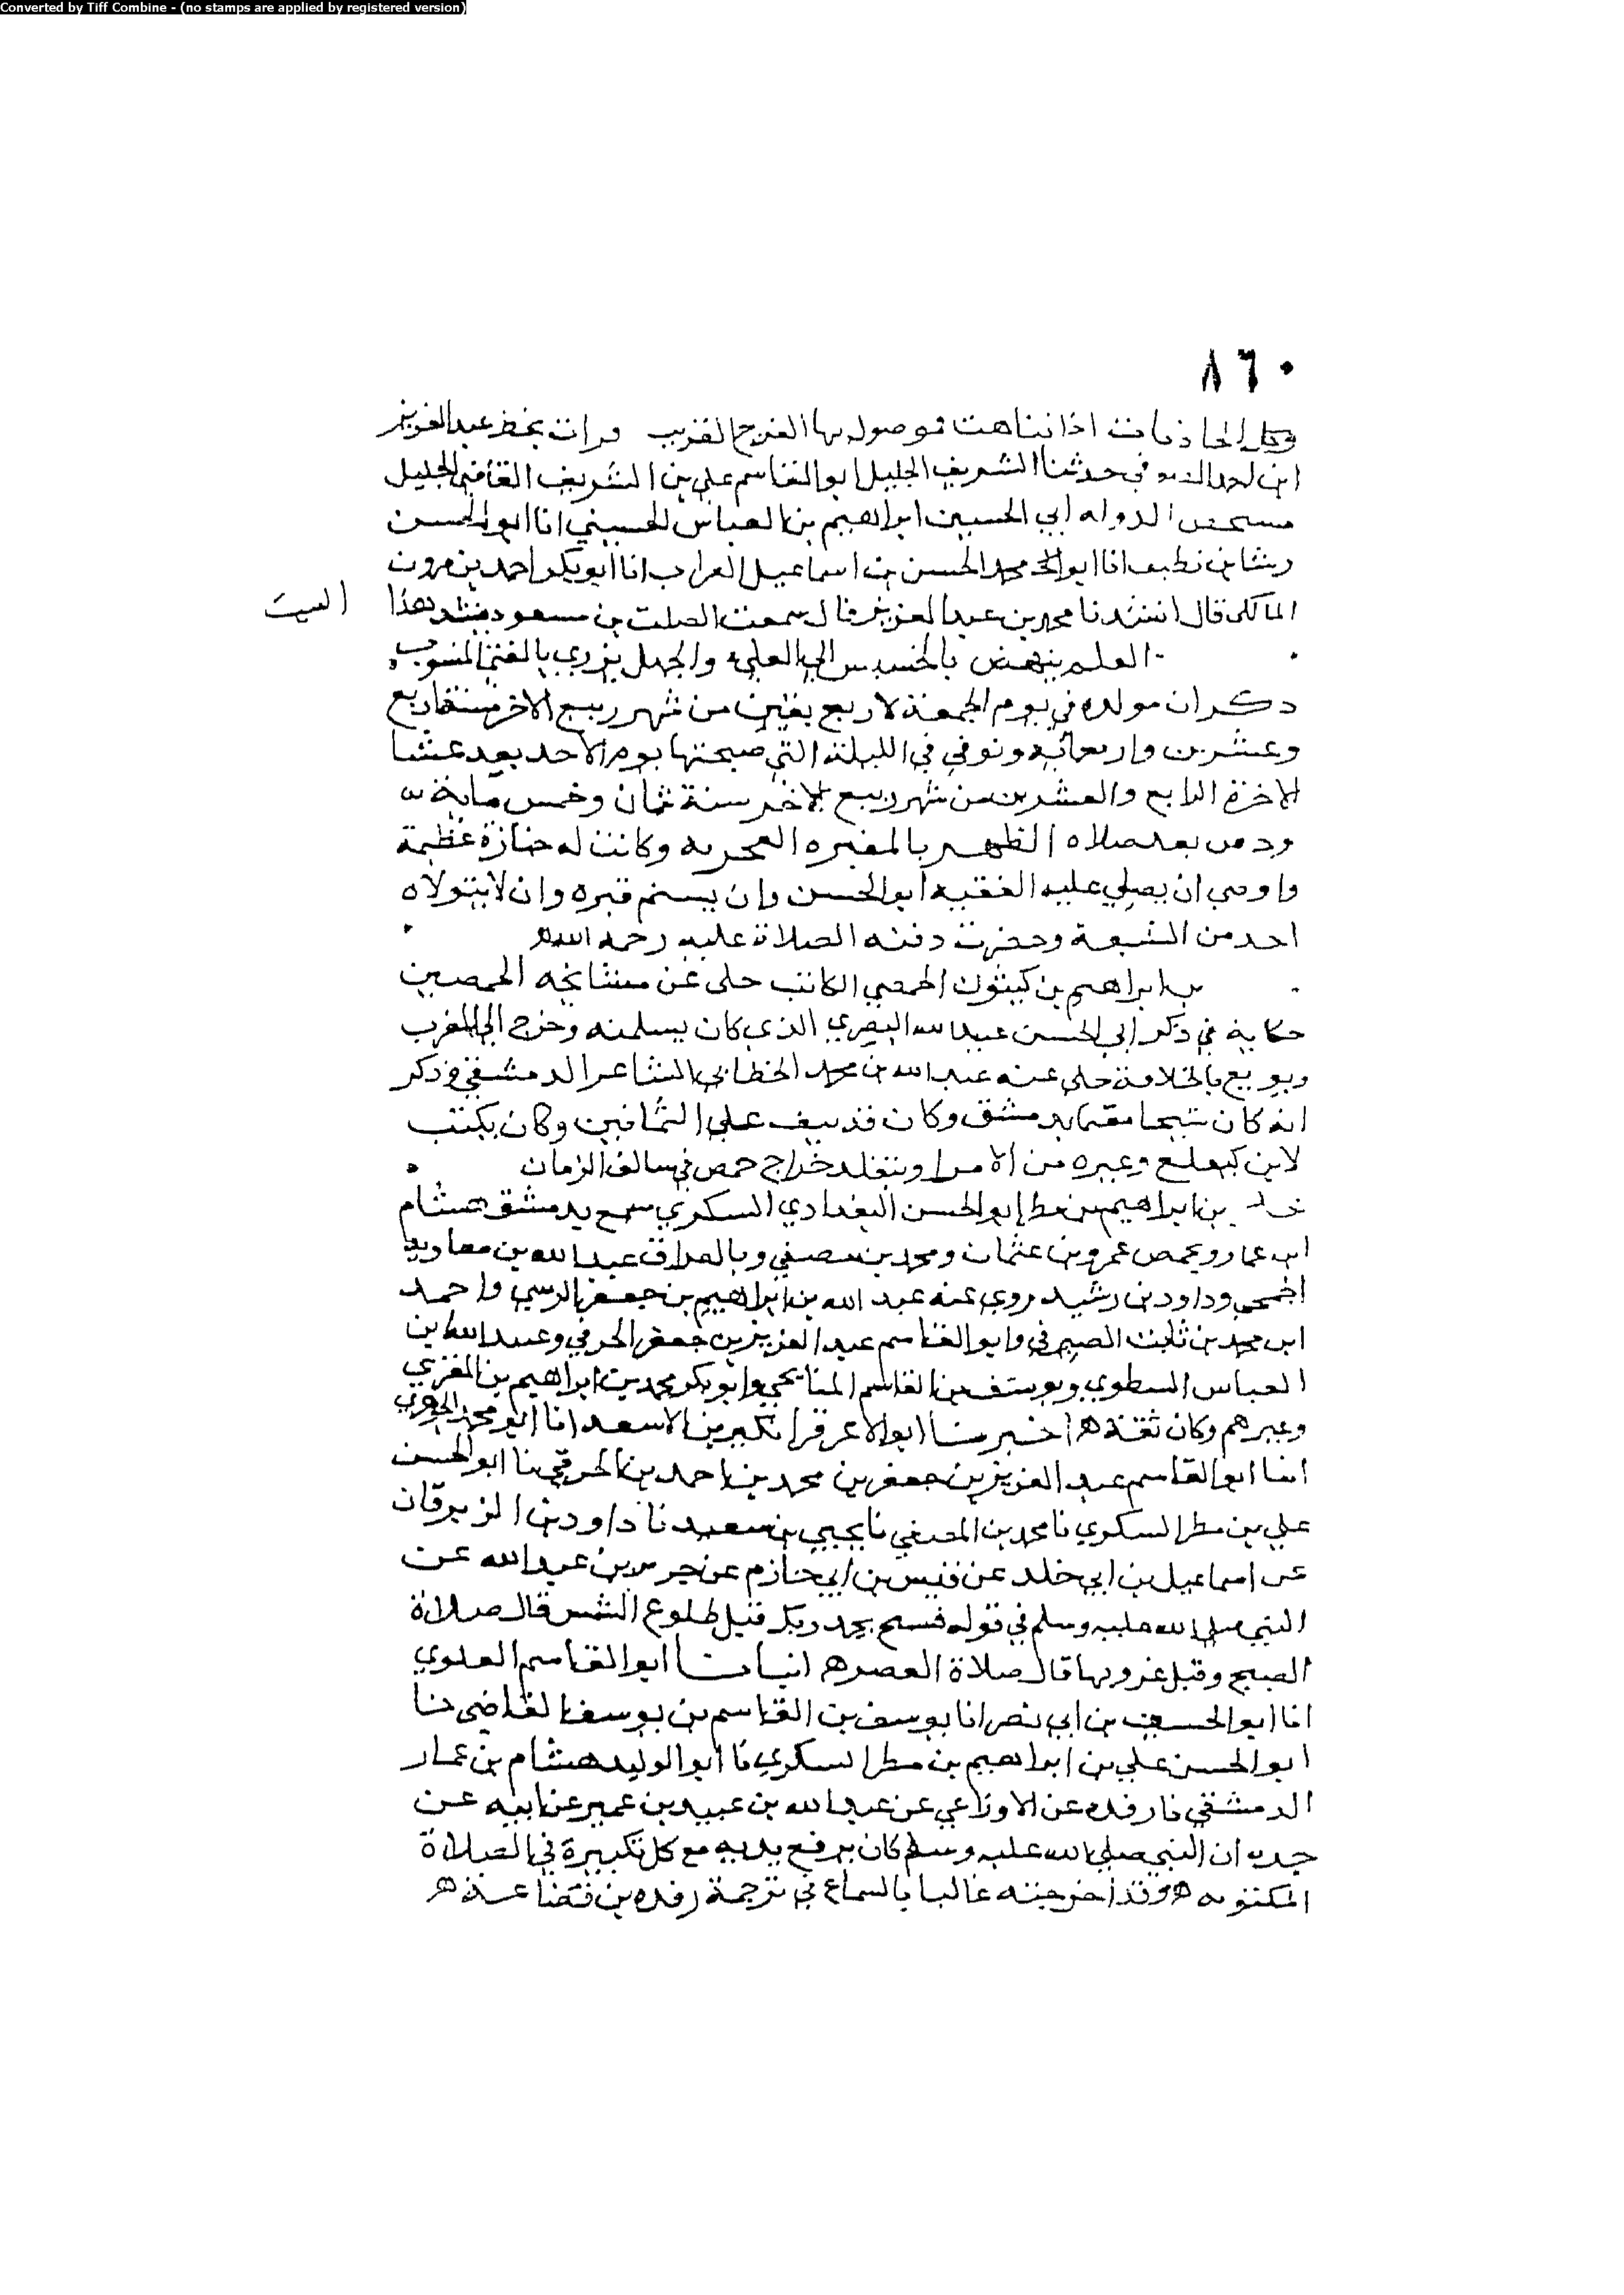 Converted by Tiff Combine - (no stamps are applied by registered version)
٨٦٠
وكل الحاذثات اذا تناهت فموصول بها الفرج القريب قرات بخط عبد العزيز
ابن احمد حدثنا الشريف الجليل ابو القاسم علي بن الشريف القاضي الجليل
الدوله ابي الحسين ابراهيم بن العباس الحسيني انا ابو الحسن
رشا بن نظيف انا ابو محمد الحسن بن اسماعيل الضراب انا ابو بكر احمد بن مرون
المالكي قال انشدنا محمد بن عبد العزيز قال سمعت الصلت بن مسعود ينشد هذا البيت
العلم ينهض بالخسيس الي العلي والجهل يزري بالفتي المنسوب
ذكر ان مولده في يوم الجمعة لاربع بقين من شهر ربيع الاخر سنة اربع
وعشرين واربعمائيه وتوفي في الليلة التي صبيحتها يوم الاحد بعد عشا
الاخرة الرابع والعشرين من شهر ربيع الاخر سنة ثمان وخمس ماية
ودفن بعد صلاه الظهر بالمقبره الفخريه وكانت له جنازة عظيمة
واوصي ان يصلي عليه الفقيه ابو الحسن وان يسنم قبره وان لا يتولاه
احد من الشيعة وحضرت دفنه الصلاة عليه رحمه الله
بن ابراهيم بن كيثوك الحمصي الكاتب حكى عن مشائخه الحمصيين
حكاية في ذكر ابي الحسن عبيد الله البصري الذي كان بسلمية وخرج الي المغرب
وبويع بالخلافة حكى عنه عبد الله بن محمد الخطابي الشاعر الدمشقي وذكر
انه كان شيخا مقيما بدمشق وكان قد نيف علي الثمانين وكان يكتب
لابن كيغلغ وغيره من الامرا وتقلد خراج حمص في سالف الزمان
بن ابراهيم بن مطر ابو الحسن البغدادي السكري سمع بدمشق هشام
ابن عمار وبحمص عمرو بن عثمان ومحمد بن مصفي وبالعراق عبد الله بن معاوية
الجمحي وداود بن رشيد روي عنه عبد الله بن ابراهيم بن جعفر الزسي واحمد
ابن محمد بن ثابت الصيرفي وابو القاسم عبد العزيز بن جعفر الخرقي وعبيد الله بن
العباس الشطوي ويوسف بن القاسم الميانجي وابو بكر محمد بن ابراهيم بن المقري
وغيرهم وكان ثقة ه اخبرنا ابو الاعز قراتكين بن الاسعد انا ابو محمد الجوهري
انبا ابو القاسم عبد العزيز بن جعفر بن محمد بن احمد بن الخرقي نا ابو الحسن
علي بن مطر السكري نا محمد بن المصفي نا يحيي بن سعيد نا داود بن الزبرقان
عن اسماعيل بن ابي خلد عن قيس بن ابي حازم عن جرير بن عبد الله عن
النبي صلى الله عليه وسلم في قوله فسبح بحمد ربك قبل طلوع الشمس قال صلاة
الصبح وقبل غروبها قال صلاة العصر ه انبانا ابو القاسم العلوي
انا ابو الحسين بن ابي نصر انا يوسف بن القاسم بن يوسف القاضي نا
ابو الحسن علي بن ابراهيم بن مطر السكري نا ابو الوليد هشام بن عمار
الدمشقي نا رفده عن الاوزاعي عن عبد الله بن عبيد بن عمير عن ابيه عن
جده ان النبي صلي الله عليه وسلم كان يرفع يديه مع كل تكبيرة في الصلاة
المكتوبه ه وقد اخرجته عاليا بالسماع في ترجمة رفده بن قضاعة ه